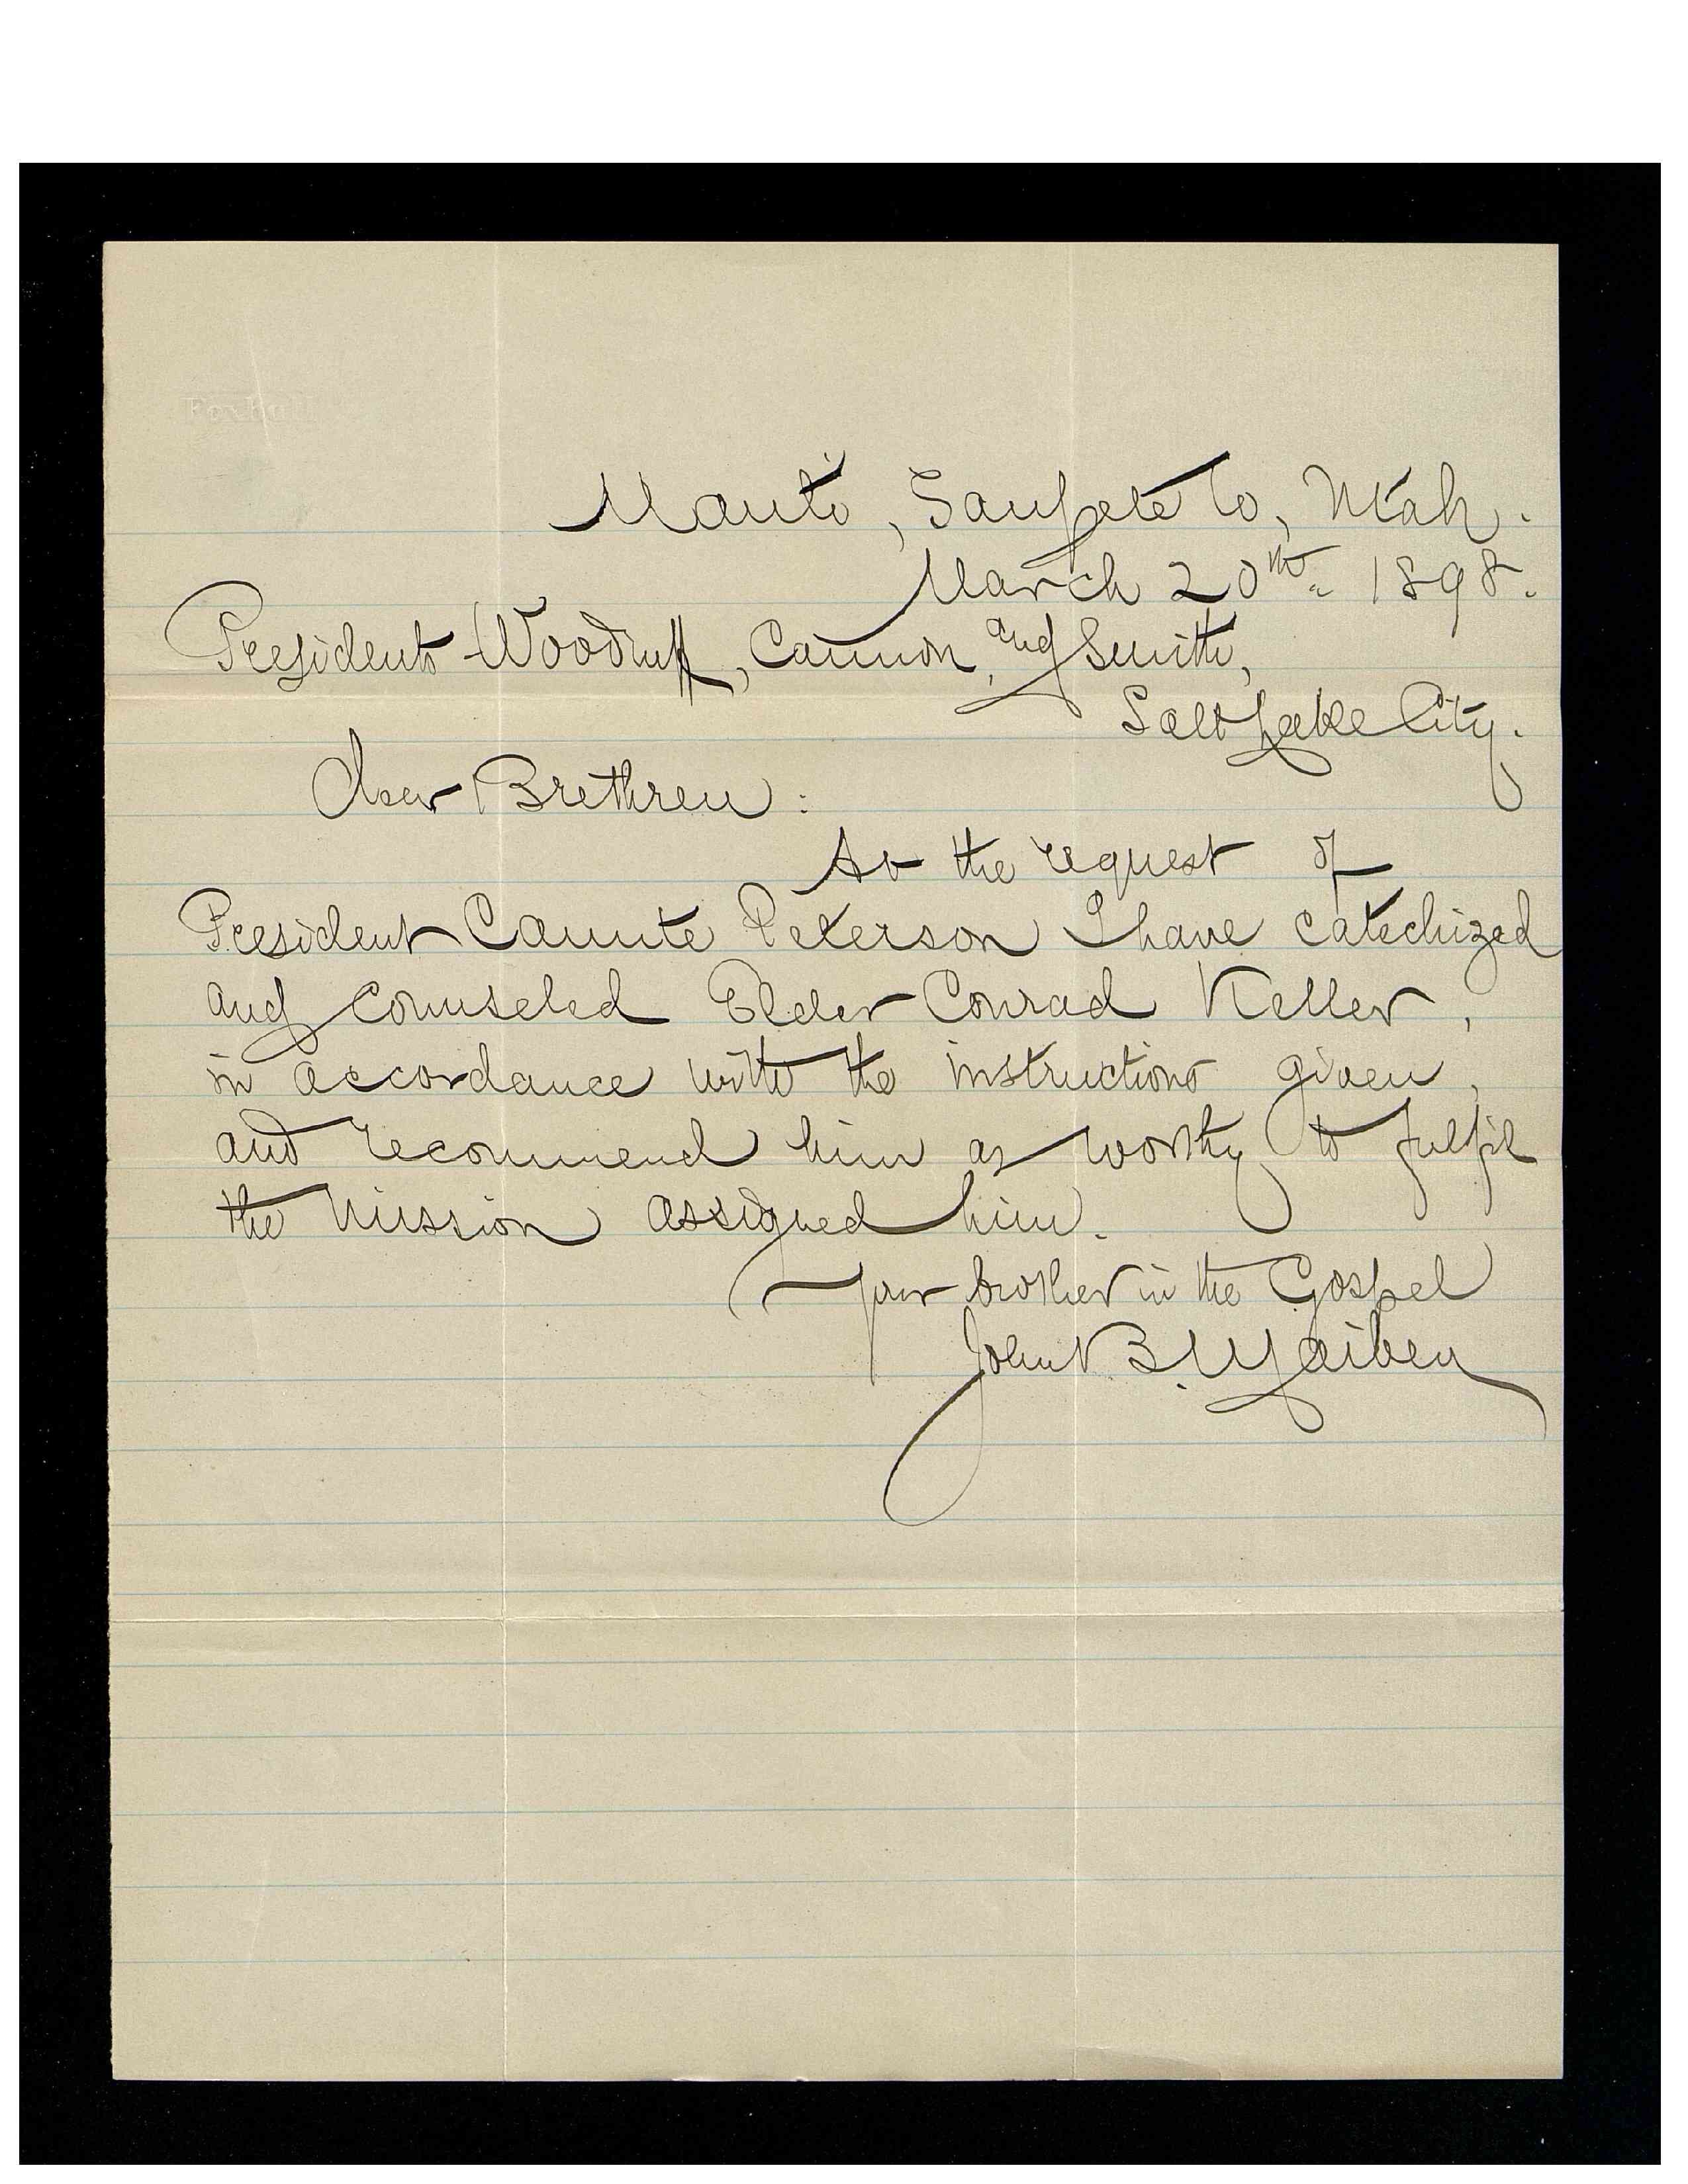 Manti, Sanpete Co, Utah.
March 20th 1898.
Presidents Woodruff, Cannon, and Smith,
Salt Lake City.
Dear Brethren:
At the request of
President Canute Peterson I have catechized
and counseled Elder Conrad Keller,
in accordance with the instructions given,
and recommend him as worthy to fulfil
the mission assigned him.
Your brother in the Gospel
John B. Maiben